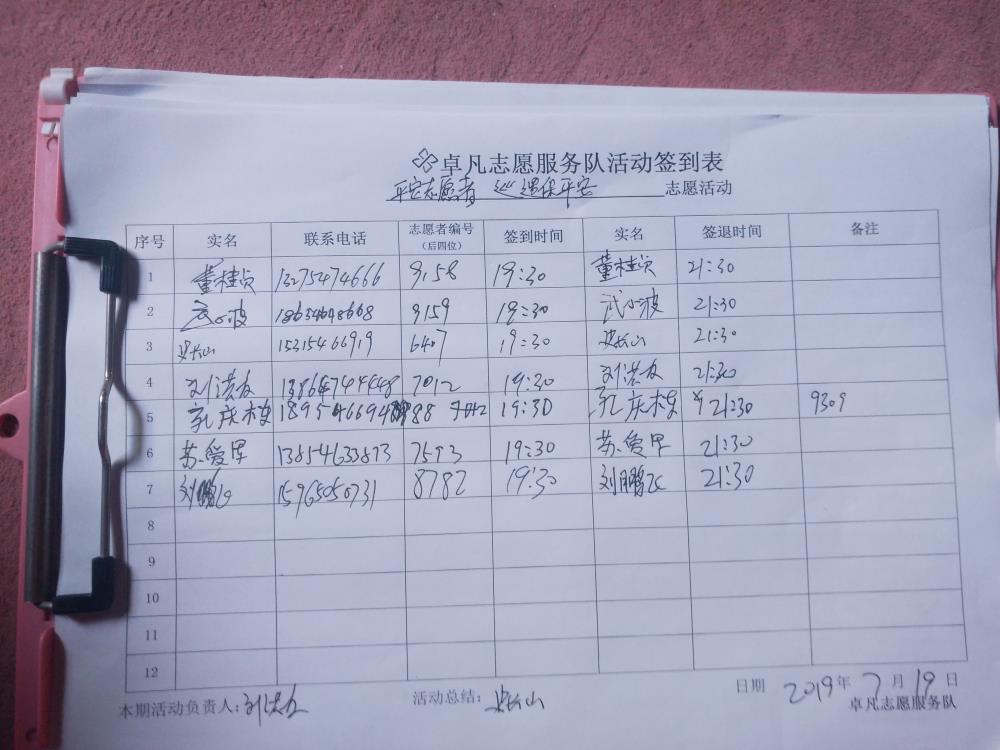 卓凡志愿服务队活动签到表
平安志愿者 巡逻保平安 志愿活动
序号 实名 联系电话 志愿者编号 (后四位) 签到时间 实名 签退时间 备注
1 董桂贞 13275474666 9158 19:30 董桂贞 21:30
2 武小波 18654648668 9159 19:30 武小波 21:30
3 史长山 15315466919 6407 19:30 史长山 21:30
4 刘洪友 7012 19:30 刘洪友 21:30
5 孔庆栋 19:30 孔庆栋 21:30 9309
6 苏爱军 13854633873 7593 19:30 苏爱军 21:30
7 刘鹏飞 15965050731 8782 19:30 刘鹏飞 21:30
8
9
10
11
12
本期活动负责人:刘洪友 活动总结: 史长山 日期 2019年7月19日
卓凡志愿服务队